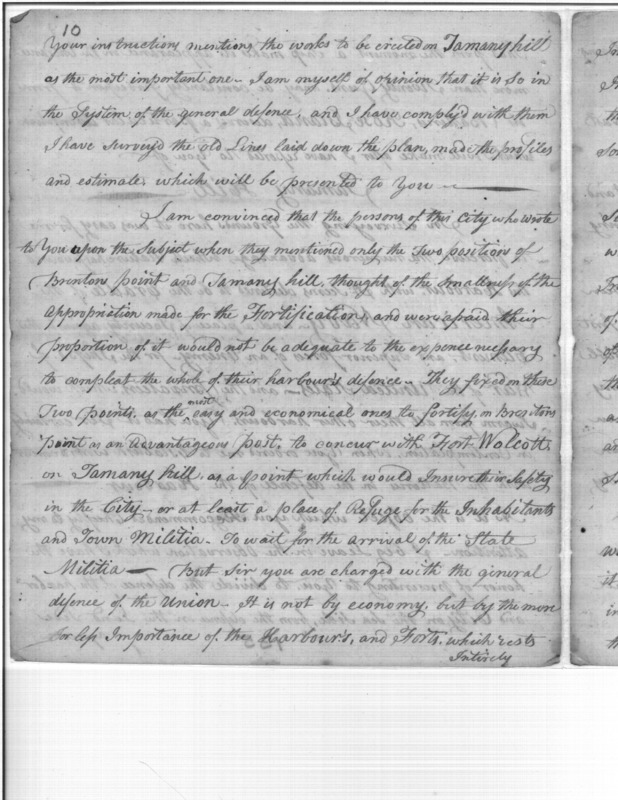 10
Your instructions mentions the works to be erected on Tamany hill
as the most important one - I am myself of opinion that it is so in
the System of the general defence, and I have comply'd with them
I have survey'd the old Lines laid down the plan, made the profiles
and estimate, which will be presented to You —
I am convinced that the persons of this City who wrote
to You upon the Subject when they mentioned only the Two position of
Brentons point and Tamany hill, thought of the smallness of the
appropriation made for the Fortification, and were afraid their
proportion of it would not be adequate to the expence necessary
to compleat the whole of their harbour's defence - They fixed on these
Two points, as the most easy and economical ones to fortify, on Brentons
point as an advantageous post, to concur with Fort Wolcott
on Tamany hill, as a point which would Insure their Safety
in the City - or at least a place of Refuge for the Inhabitants
and Town Militia - To wait for the arrival of the State
Militia — But Sir you are charged with the general
defence of the Union - It is not by economy, but by the more
or less Importance of the Harbour's, and Forts, which rests
Intirely